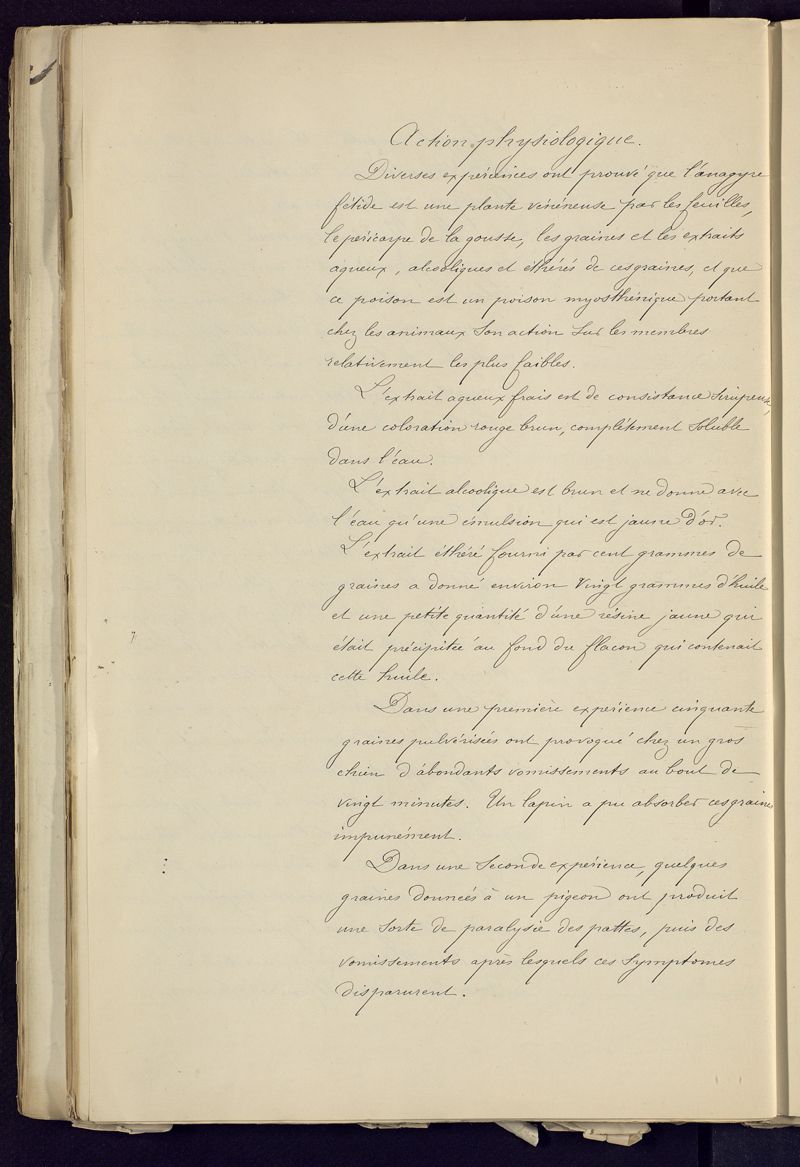 Action physiologique.
Diverses expériences ont prouvé que l'anagyre
fétide est une plante vénéneuse par les feuilles,
le péricarpe de la gousse, les graines et les extraits
aqueux, alcooliques et éthérés de ces graines, et que
ce poison est un poison myosthénique portant
chez les animaux son action sur les membres
relativement les plus faibles.
L'extrait aqueux frais est de consistance sirupeuse,
d'une coloration rouge brun, complètement soluble
dans l'eau.
L'extrait alcoolique est brun et ne donne avec
l'eau qu'une émulsion qui est jaune d'or.
L'extrait éthéré fourni par cent grammes de
graines a donné environ vingt grammes d'huile
et une petite quantité d'une résine jaune qui
était précipitée au fond du flacon qui contenait
cette huile.
Dans une première expérience cinquante
graines pulvérisées ont provoqué chez un gros
chien d'abondants vomissements au bout de
vingt minutes. Un lapin a pu absorber ces graines
impunément.
Dans une seconde expérience, quelques
graines données à un pigeon ont produit
une sorte de paralysie des pattes, puis des
vomissements après lesquels ces symptomes
disparurent.